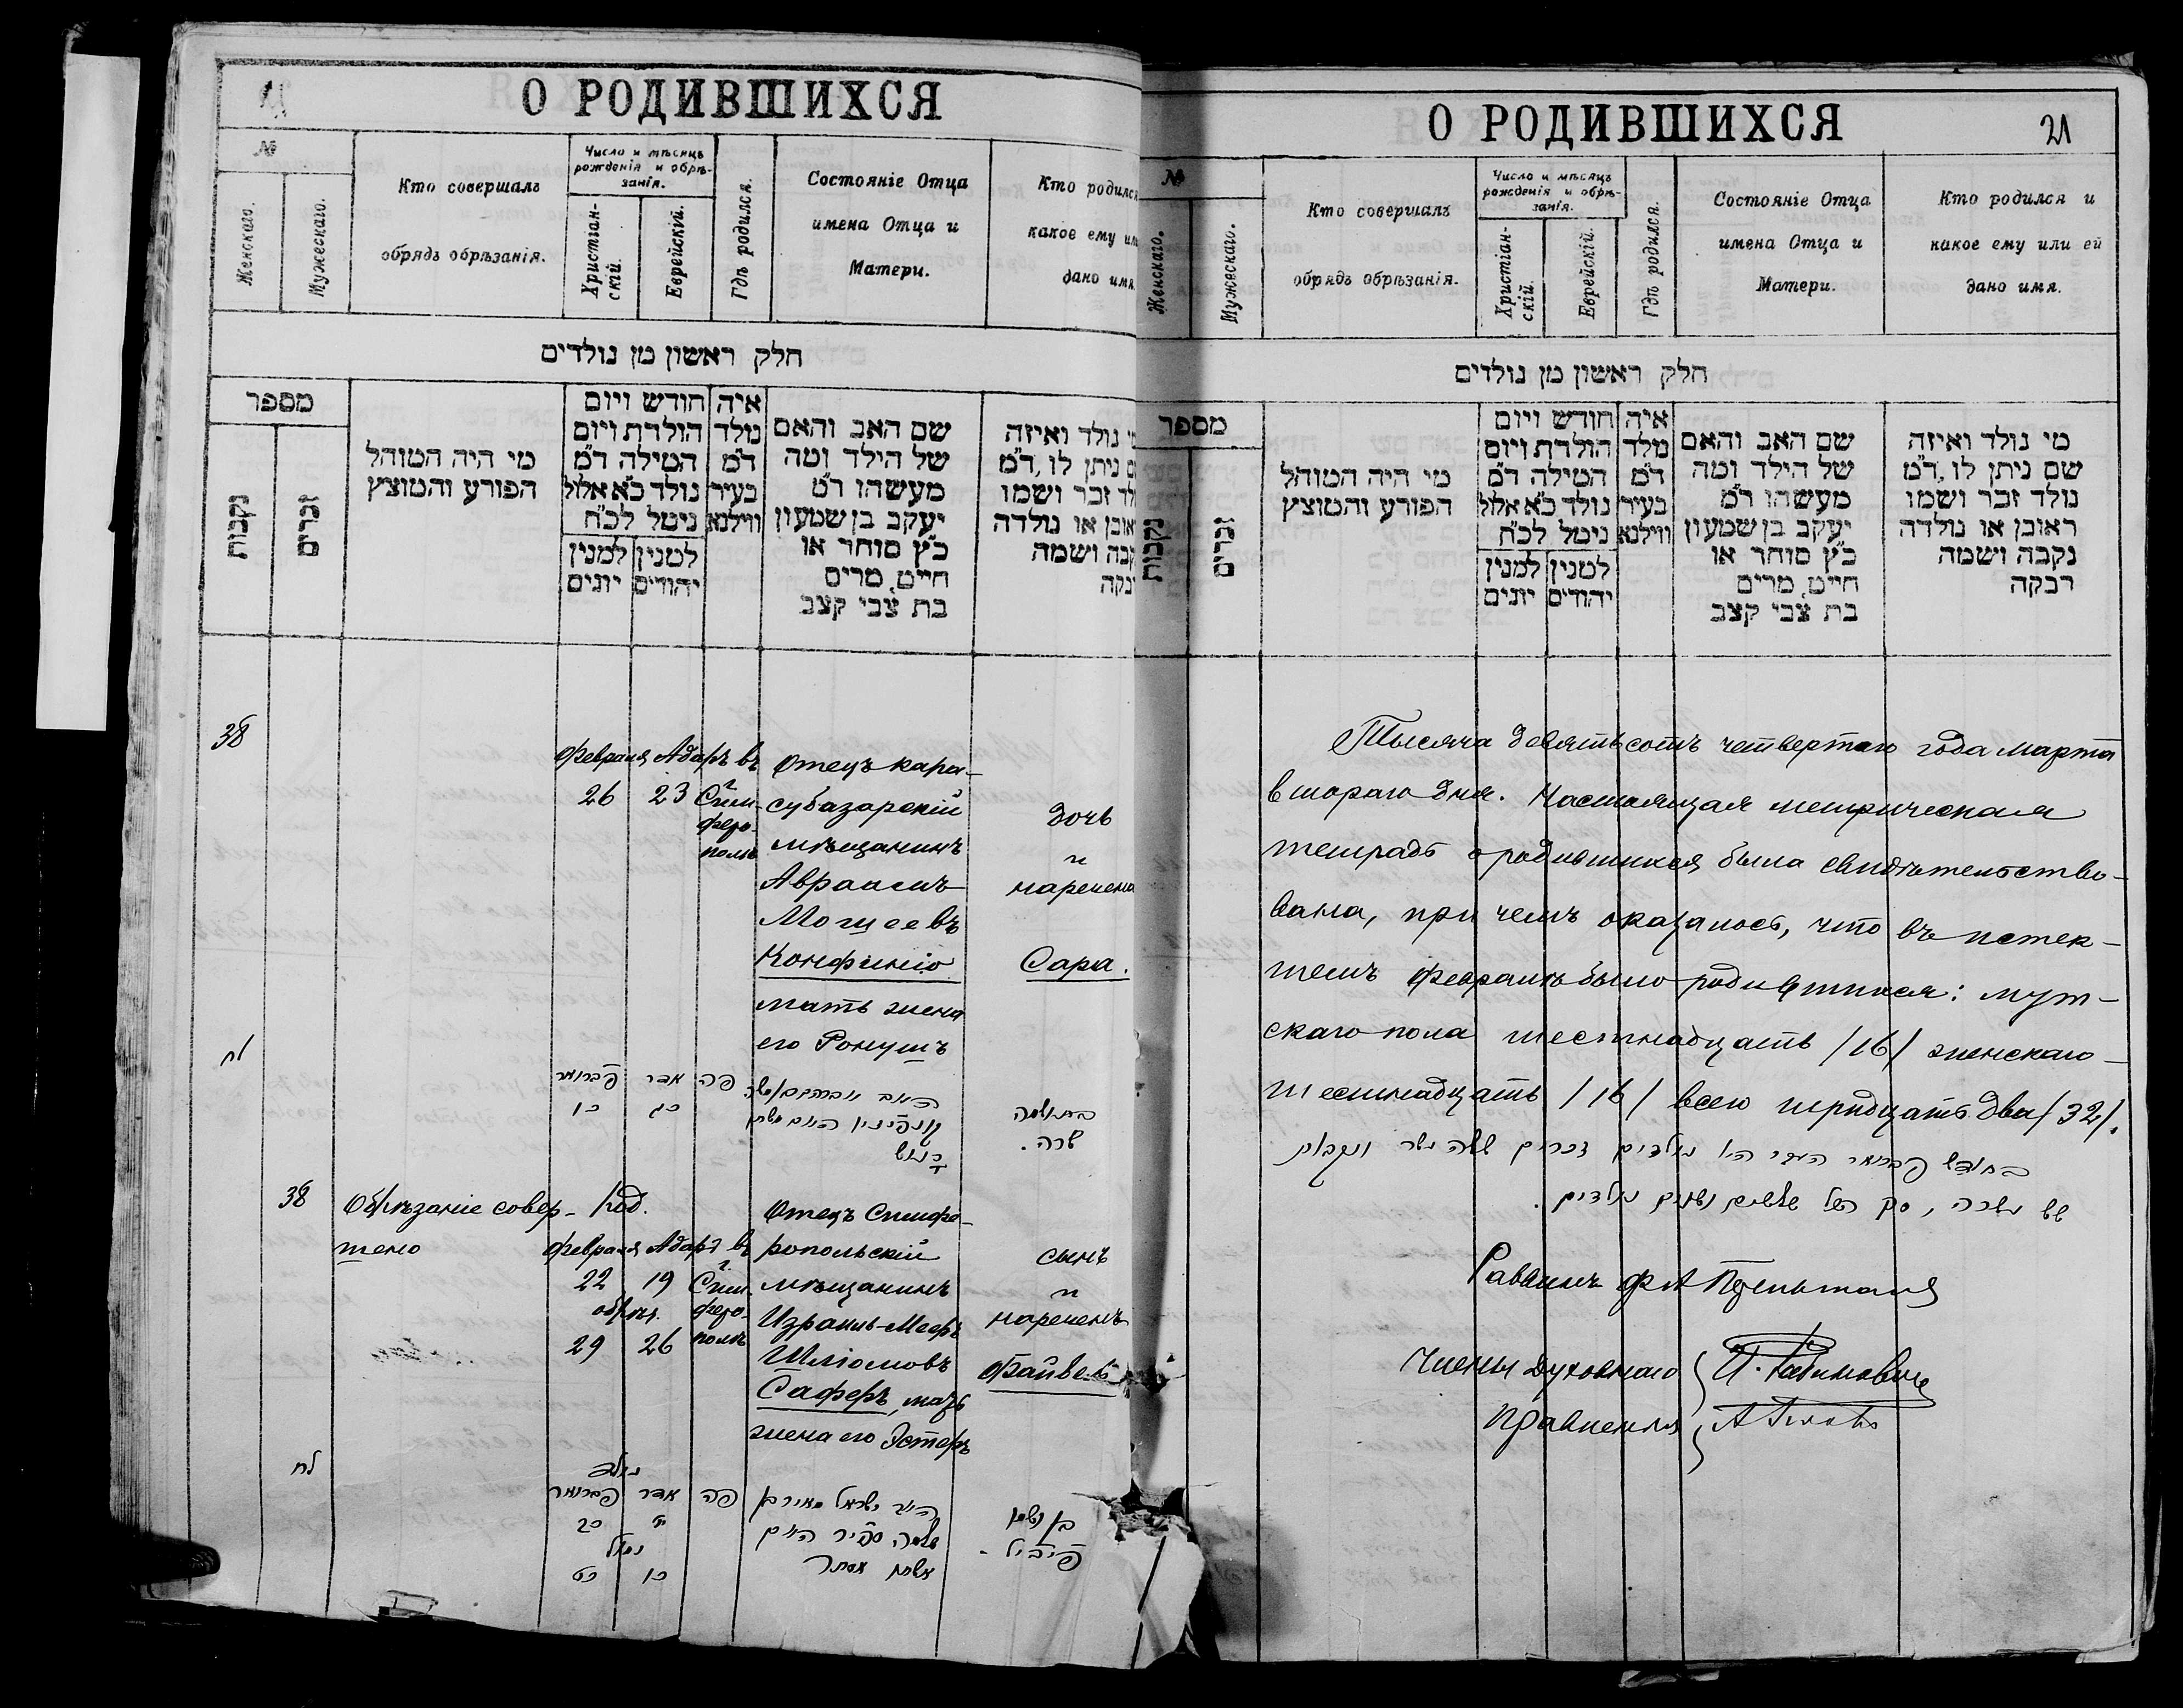 О РОДИВШИХСЯ
№
Женскаго.
Мужескаго.
Кто совершалъ
обрядъ обрѣзанія.
Число и мѣсяцъ
рожденія и обрѣ-
занія.
Христіан-
скій.
Еврейскій.
Гдѣ родился.
Состояніе Отца
имена Отца и
Матери.
Кто родился
какое ему или
дано имя.
חלק ראשון מן נולדים
מספר
נקבות
זכרים
מי היה המוהל
הפורע והמוצץ
חודש ויום
הולדת ויום
המילה ד"מ
נולד כ"א אלול
נימל לכ"ח
למנין יהודים
למנין יונים
איה
נולד
ד"מ
בעיר
ווילנא
שם האב והאם
של הילד ומה
מעשהו ד"מ
יעקב בן שמעון
כ"ץ סוחר או
חייט, מרים
בת צבי קצב
נולד ואיזה
ניתן לו, ד"מ
זכר ושמו
או נולדה
ושמה
38
Февраля Адаръ въ
26 23 г. Сим-
феро-
полѣ
Отецъ кара-
субазарскій
мѣщанинъ
Авраамъ
Мошеевъ
Конфиніо
мать жена
его Ронушъ
дочь
и
наречена
Сара.
לח
פברואר אדר פה
כו כג
שרה.
38 Обрѣзаніе совер-
шено
Род.
Февраля Адаръ въ
22 19 г. Сим-
обрѣз. феро-
29 26 полѣ
Отецъ Симфе-
ропольскій
мѣщанинъ
Израиль-Мееръ
Шліомовъ
Саферъ, мать
жена его Эстеръ
сынъ
и
нареченъ
Файвель
לח
נולד
פברואר אדר פה
כב יט
נמול
כט כו
ישראל מאיר בן
שלמה ספיר האם
אסתר
בן ושמו
פייביל
О РОДИВШИХСЯ
21
№
Женскаго.
Мужескаго.
Кто совершалъ
обрядъ обрѣзанія.
Число и мѣсяцъ
рожденія и обрѣ-
занія.
Христіан-
скій.
Еврейскій.
Гдѣ родился.
Состояніе Отца
имена Отца и
Матери.
Кто родился и
какое ему или ей
дано имя.
חלק ראשון מן נולדים
מספר
נקבות
זכרים
מי היה המוהל
הפורע והמוצץ
חודש ויום
הולדת ויום
המילה ד"מ
נולד כ"א אלול
נימל לכ"ח
למנין יהודים
למנין יונים
איה
נולד
ד"מ
בעיר
ווילנא
שם האב והאם
של הילד ומה
מעשהו ד"מ
יעקב בן שמעון
כ"ץ סוחר או
חייט, מרים
בת צבי קצב
מי נולד ואיזה
שם ניתן לו, ד"מ
נולד זכר ושמו
ראובן או נולדה
נקבה ושמה
רבקה
Тысяча девятьсотъ четвертаго года марта
втораго дня. Настоящая метрическая
тетрадь о родившихся была свидѣтельство-
вана, при чемъ оказалось, что въ истек-
шемъ февралѣ было родившихся: муж-
скаго пола шестнадцать /16/ женскаго
шестнадцать /16/ всего тридцать два /32/.
בחודש פברואר היו נולדים זכרים ששה עשר ונקבות
שש עשרה, סך הכל שלשים ושנים נולדים.
Раввинъ
Члены Духовнаго
Правленія